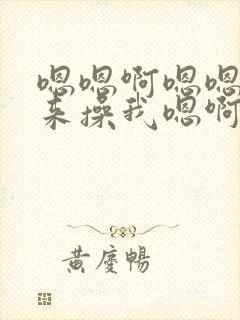 嗯嗯啊嗯嗯
来操我嗯啊
黄庆畅